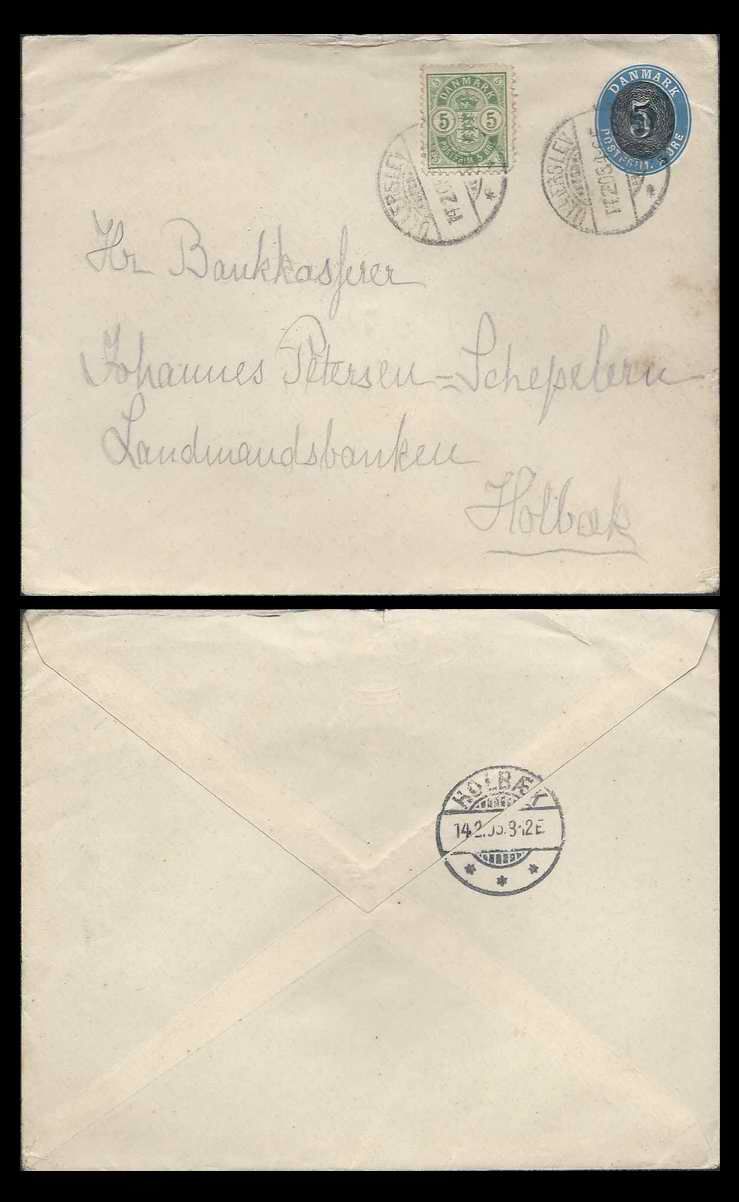 5 DANMARK 5
5 5
POSTFRIM. 5 ØRE
DANMARK
5
POSTFRIM. ØRE
ULLERSLEV
14.2.0
ULLERSLEV
Hr Bankkasserer
Johannes Petersen=Schepelern
Landmandsbanken
Holbæk
HOLBÆK
14.2. 8-12E